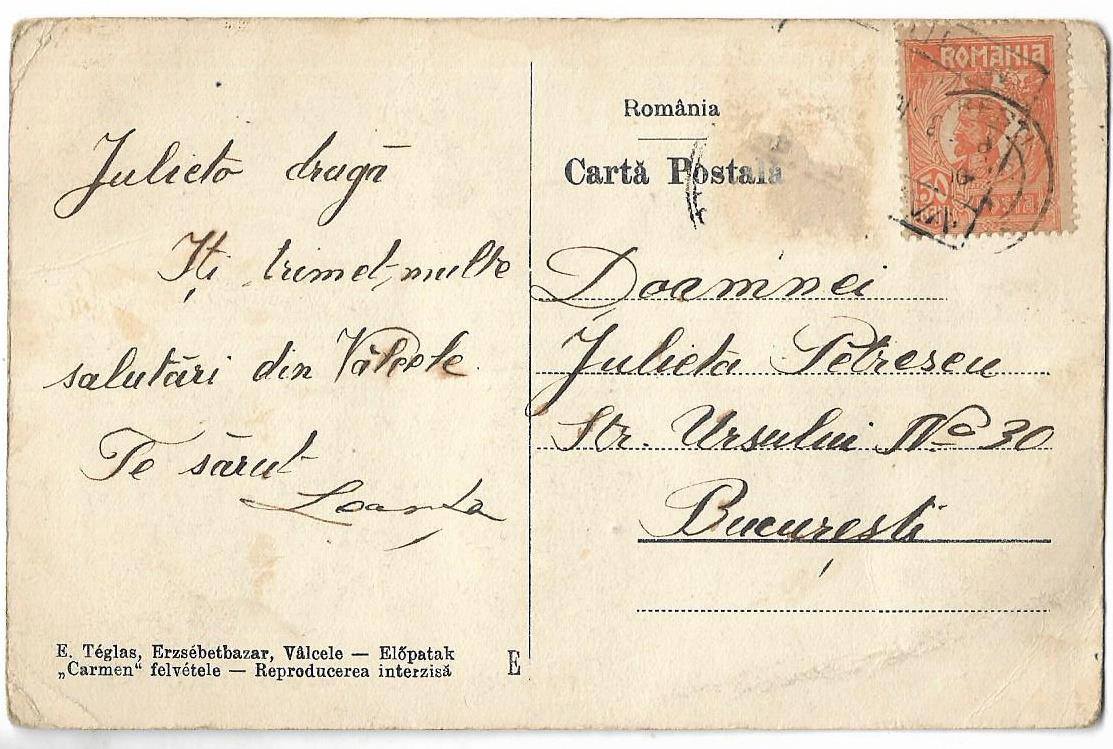 Julieta dragă
Iți trimet multe
salutări din Vâlcele.
Te sărut
E. Téglas, Erzsébetbazar, Vâlcele — Előpatak
„Carmen“ felvétele — Reproducerea interzisă
E
România
Cartă Postala
ROMANIA
50
Posta
Doamnei
Julieta Petrescu
Str. Ursului No 30
București